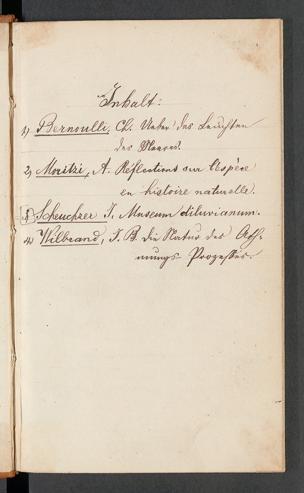 Inhalt:
1) Bernoulli, Ch. Ueber das Leuchten
des Meeres.
2) Moritzi, A. Réflections sur l'espèce
en histoire naturelle.
3) Scheuchzer J. Museum diluvianum.
4) Wilbrand, J. B. die Natur des Ath-
mungs-Prozesses.